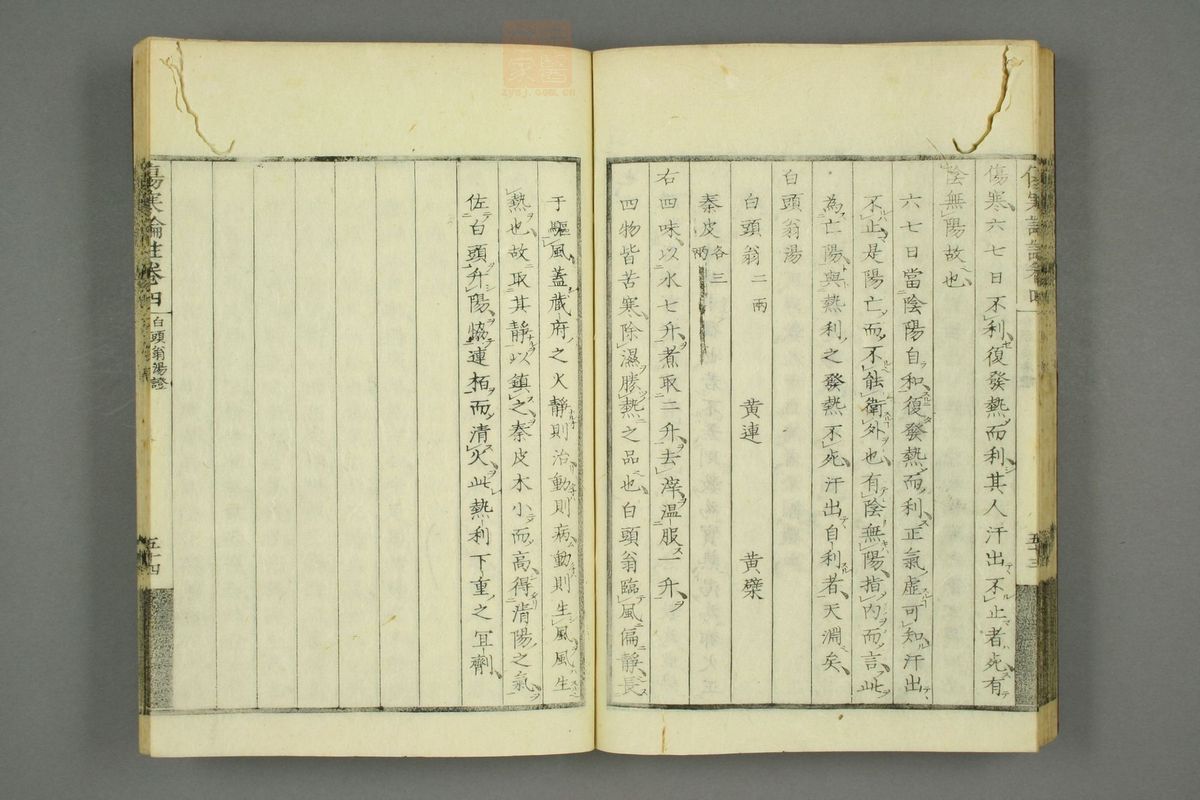 傷寒六七日不利復發熱而利其人汗出不止者死有
陰無陽故也
六七日當陰陽自和復發熱而利正氣虛可知汗出
不止是陽亡而不能衛外也有陰無陽指內而言此
為亡陽與熱利之發熱不死汗出自利者天淵矣
白頭翁湯
白頭翁二兩 黃連 黃檗
秦皮各三兩
右四味以水七升煮取二升去滓溫服一升
四物皆苦寒除濕勝熱之品也白頭翁臨風偏靜長
五十三
于驅風蓋蔵府之火靜則治動則病動則生風風生
熱也故取其靜以鎮之秦皮木小而高得清陽之氣
佐白頭升陽恊連栢而清火此熱利下重之宜劑
傷寒論註卷四
白頭翁湯證
五十四
醫家
zysj.com.cn